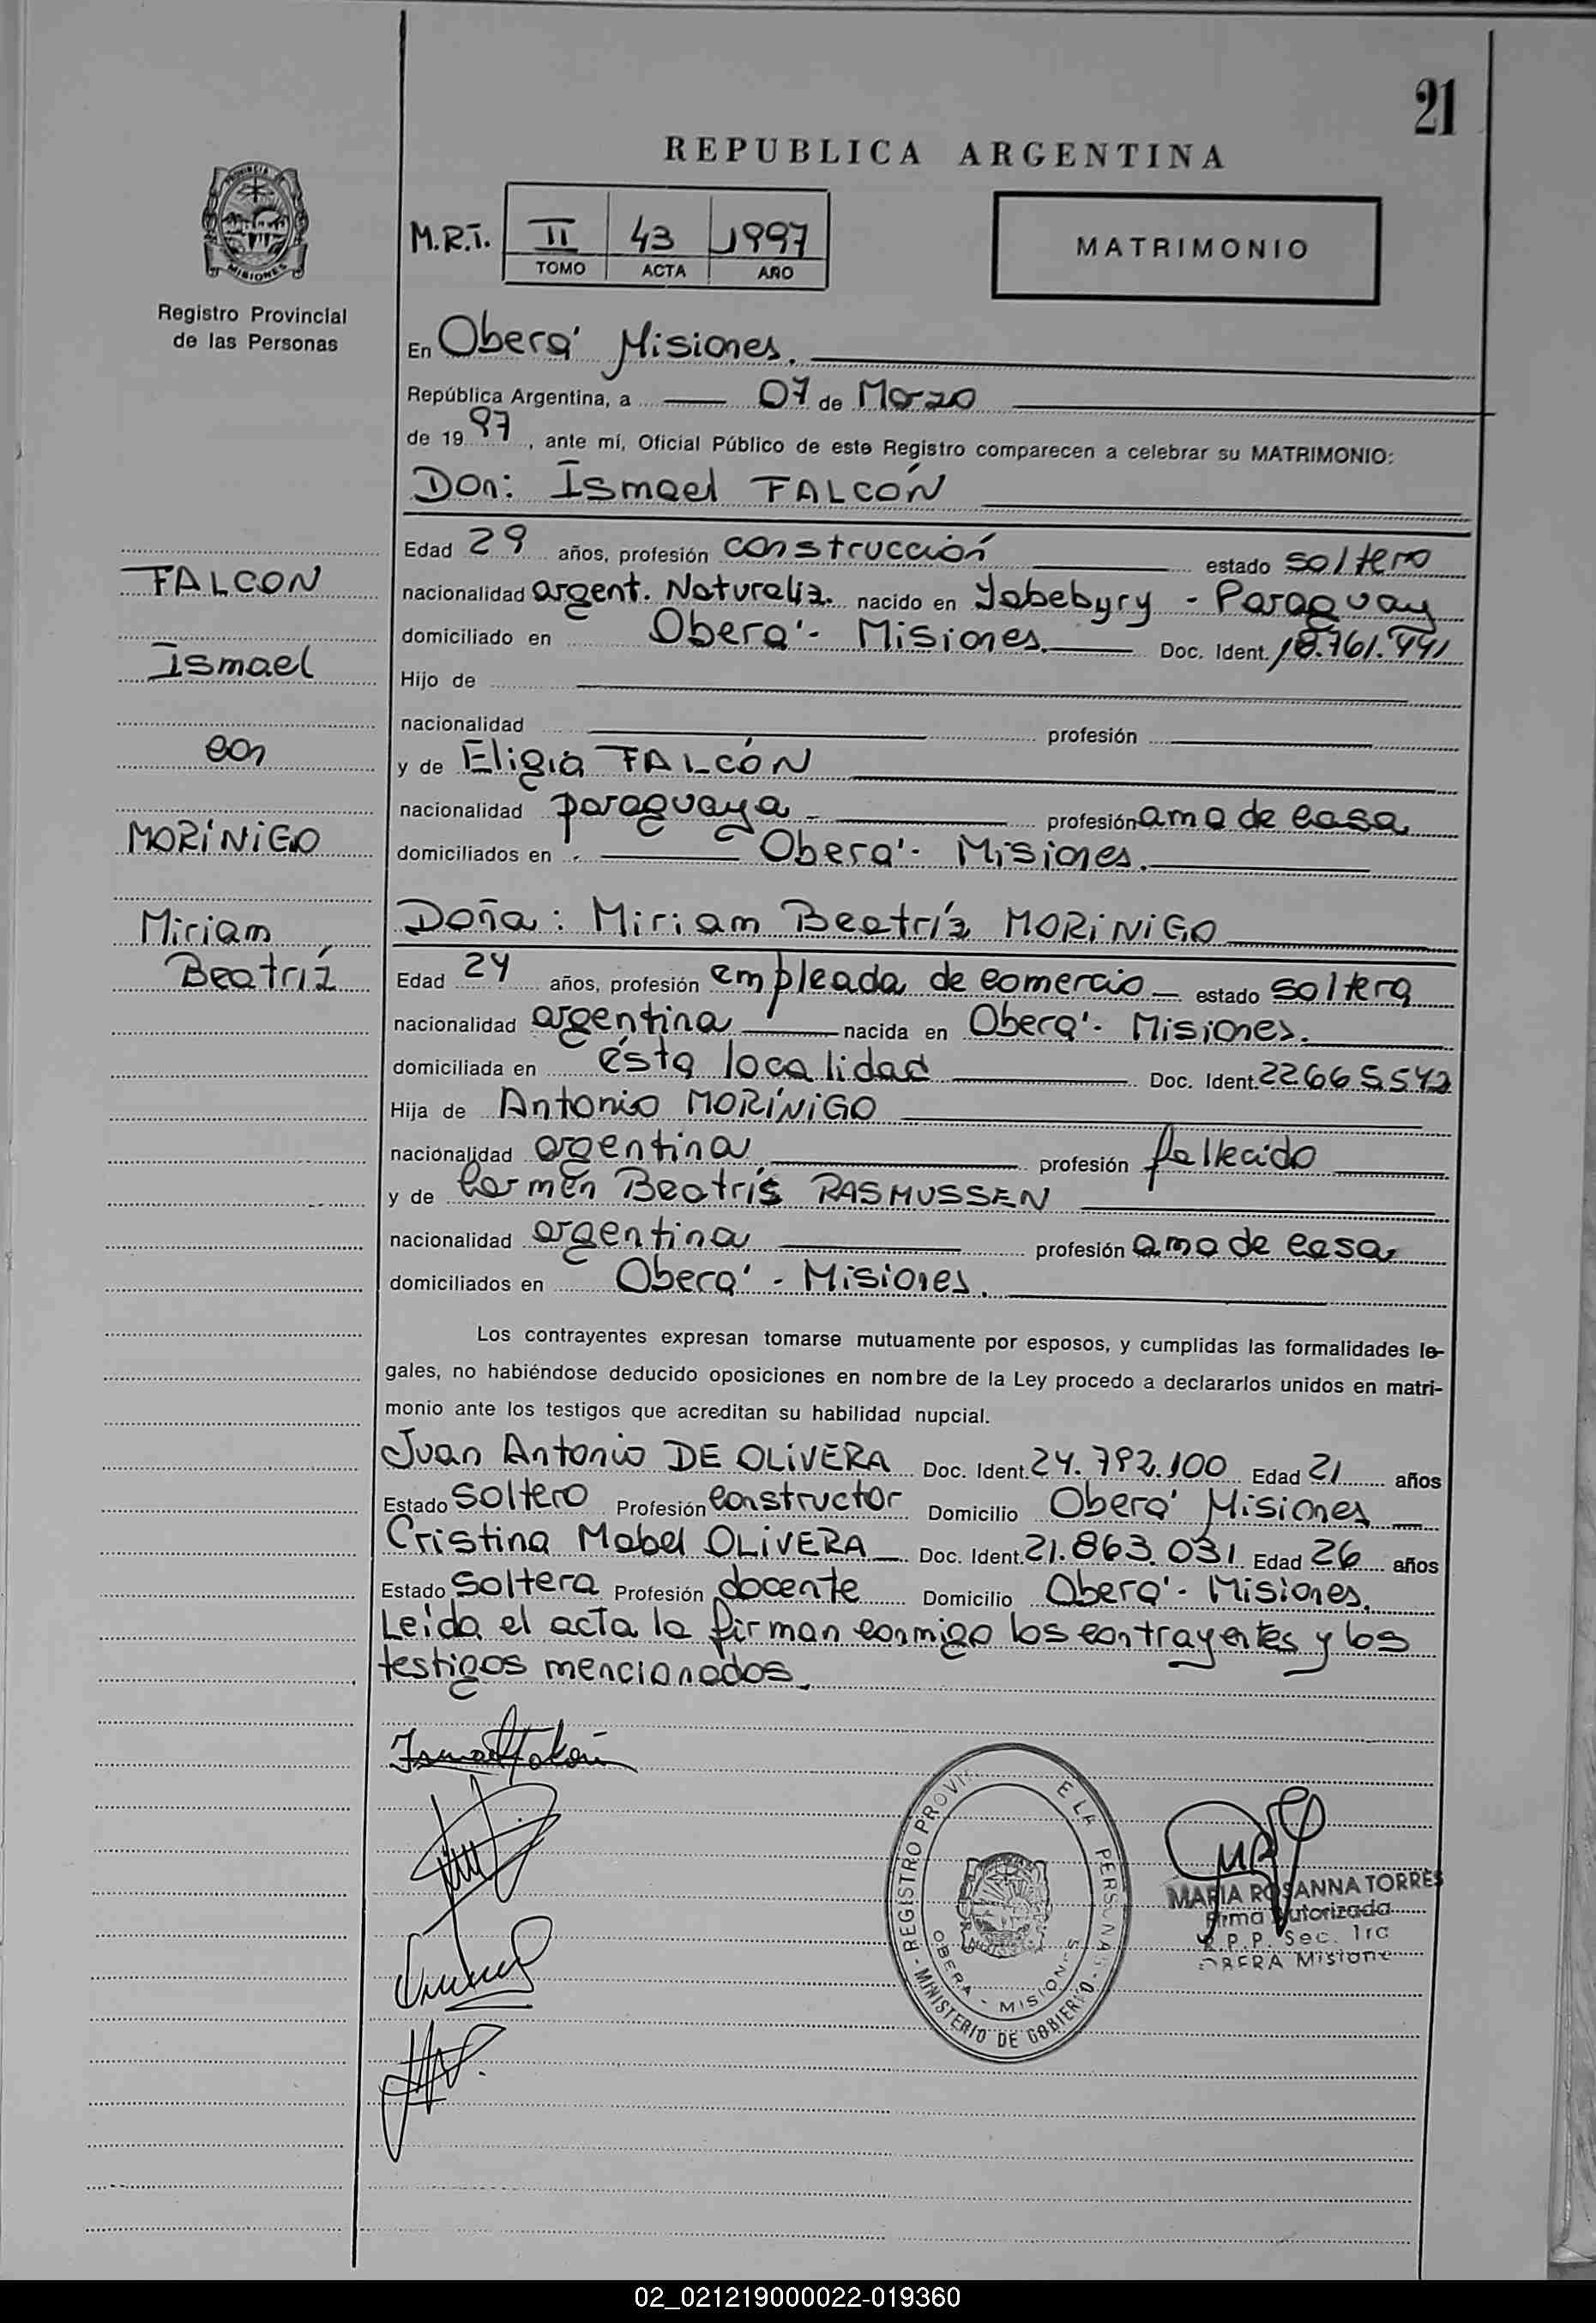 21
REPUBLICA ARGENTINA
PROVINCIA DE
MISIONES
Registro Provincial
de las Personas
M.R.I.
II 43 1997
TOMO ACTA AÑO
MATRIMONIO
En Oberá Misiones.
República Argentina, a 07 de Marzo
de 19 97, ante mí, Oficial Público de este Registro comparecen a celebrar su MATRIMONIO:
Don: Ismael FALCÓN
Edad 29 años, profesión construcción estado soltero
nacionalidad argent. Naturaliz. nacido en Yabebyry - Paraguay
domiciliado en Oberá - Misiones. Doc. Ident. 18.761.441
Hijo de
nacionalidad profesión
y de Eligia FALCÓN
nacionalidad paraguaya - profesión ama de casa
domiciliados en Oberá - Misiones.
FALCON
Ismael
con
MORÍNIGO
Miriam
Beatríz
Doña: Miriam Beatríz MORÍNIGO
Edad 24 años, profesión empleada de comercio - estado soltera
nacionalidad argentina nacida en Oberá - Misiones.
domiciliada en ésta localidad Doc. Ident. 22.665.542
Hija de Antonio MORÍNIGO
nacionalidad argentina profesión fallecido
y de Carmen Beatrís RASMUSSEN
nacionalidad argentina profesión ama de casa
domiciliados en Oberá - Misiones.
Los contrayentes expresan tomarse mutuamente por esposos, y cumplidas las formalidades le-
gales, no habiéndose deducido oposiciones en nombre de la Ley procedo a declararlos unidos en matri-
monio ante los testigos que acreditan su habilidad nupcial.
Juan Antonio DE OLIVERA Doc. Ident. 24.792.100 Edad 21 años
Estado soltero Profesión constructor Domicilio Oberá Misiones
Cristina Mabel OLIVERA Doc. Ident. 21.863.031 Edad 26 años
Estado soltera Profesión docente Domicilio Oberá - Misiones.
Leída el acta la firman conmigo los contrayentes y los
testigos mencionados.
Ismael Falcón
REGISTRO PROVI E LA PERSONAS - MINISTERIO DE GOBIERNO
OBERA - MISIONES
MARIA ROSANNA TORRES
Firma Autorizada
R.P.P. Sec. 1ra
OBERA Misione
02_021219000022-019360